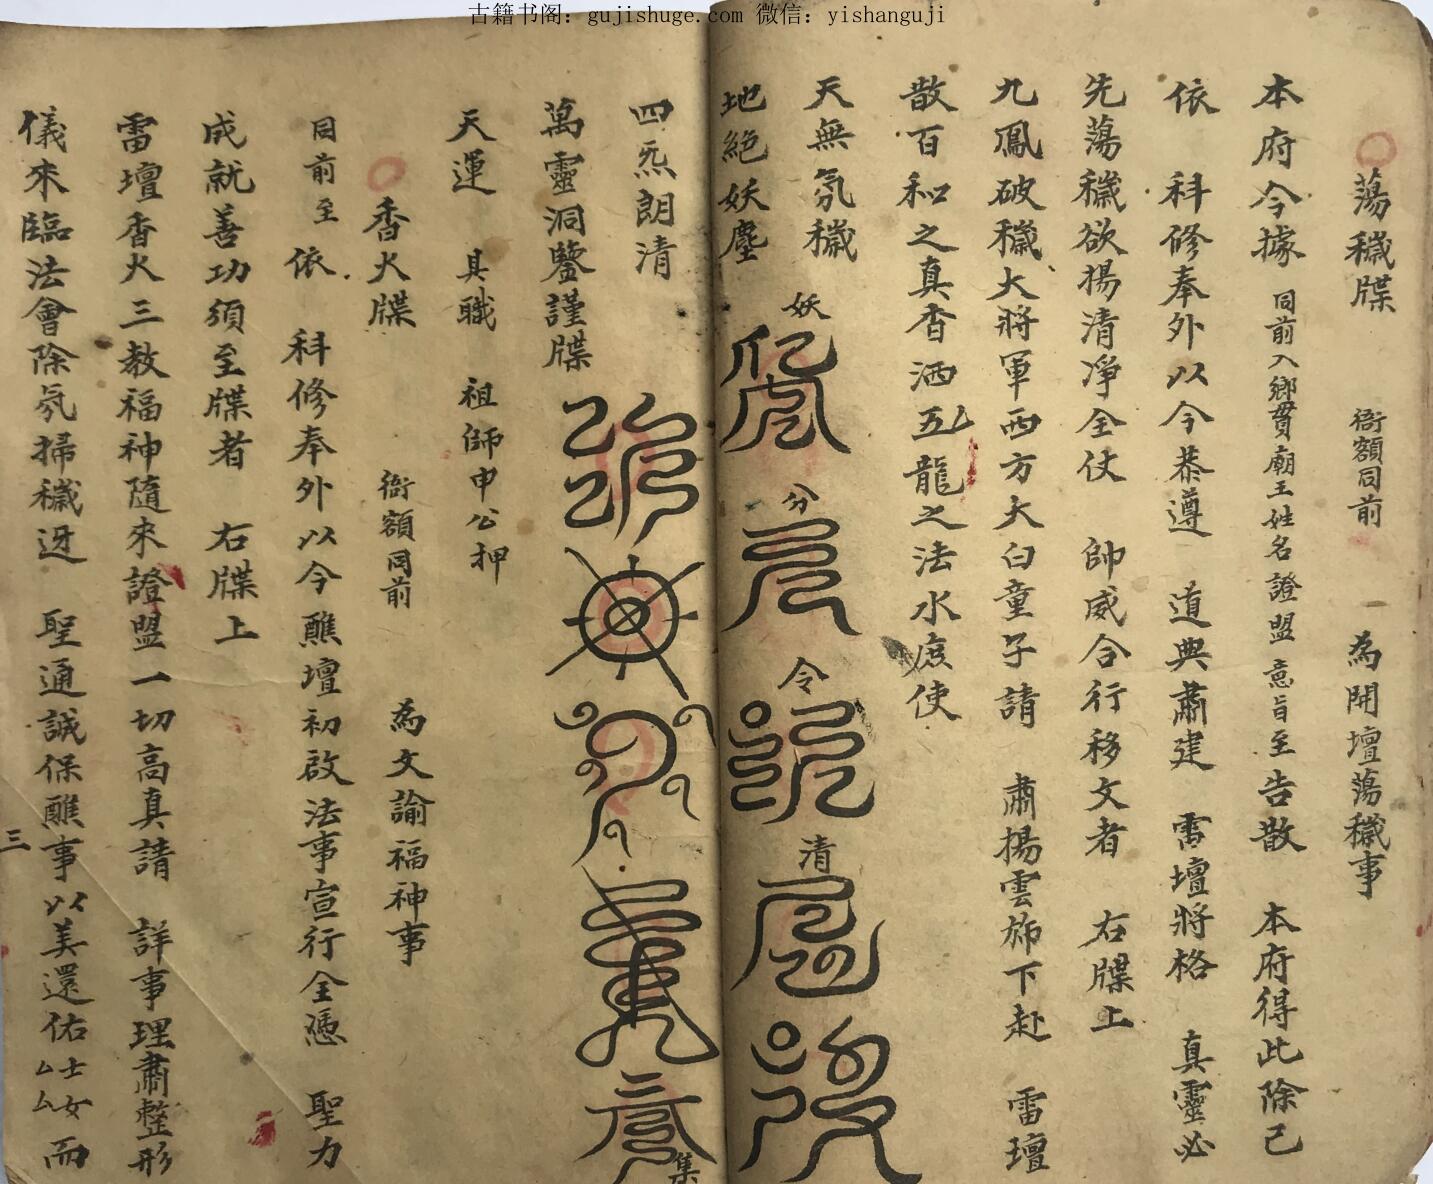 古籍书阁：gujishuge.com 微信：yishanguji
蕩穢牒 衙額同前 一為開壇蕩穢事
本府今據 同前入鄉貫廟王姓名證盟意旨至 告散 本府得此除已
依 科修奉外以今恭遵 道典肅建 雷壇將格 真靈必
先蕩穢欲揚清凈全仗 帥威合行移文者 右牒上
九鳳破穢大將軍西方大白童子請 肅揚雲斾下赴 雷壇
散百和之真香洒五龍之法水庶使
天無氛穢
地絕妖塵
妖
分
令
清
四炁朗清
萬靈洞鑒謹牒
集
天運 具職 祖師申公押
香火牒 衙額同前 為文諭福神事
同前至 依 科修奉外以今醮壇初啟法事宣行全憑 聖力
成就善功須至牒者 右牒上
雷壇香火三教福神隨來證盟一切高真請 詳事理肅整形
儀來臨法會除氛掃穢迓 聖通誠保醮事以美還佑士女厶厶而
三